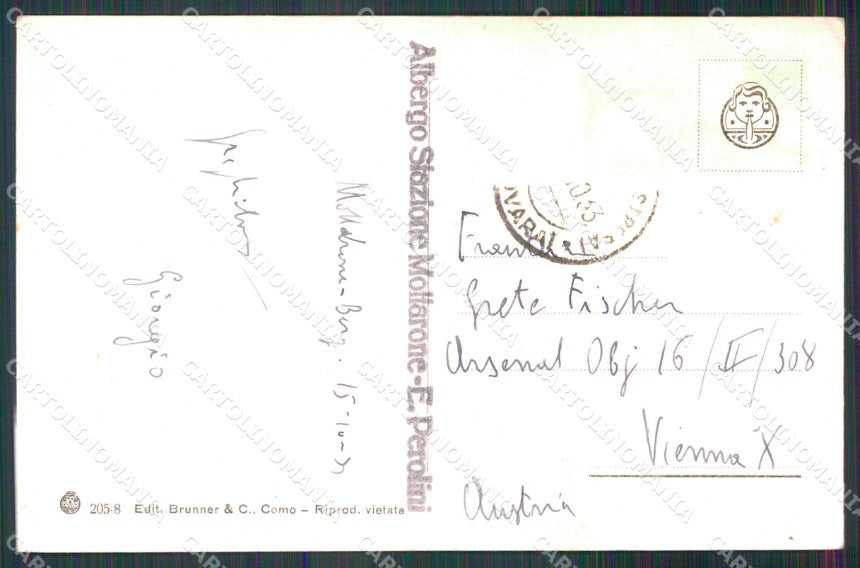 Giorgio
Mottarone-Berg. 15-10-
Albergo Stazione Mottarone-E. Perolini
205-8 Edit. Brunner & C., Como – Riprod. vietata
STRESA
NOVARA
10.53
Grete Fischer
Arsenal Obj 16/II/308
Vienna X
Austria
CARTOLINOMANIA